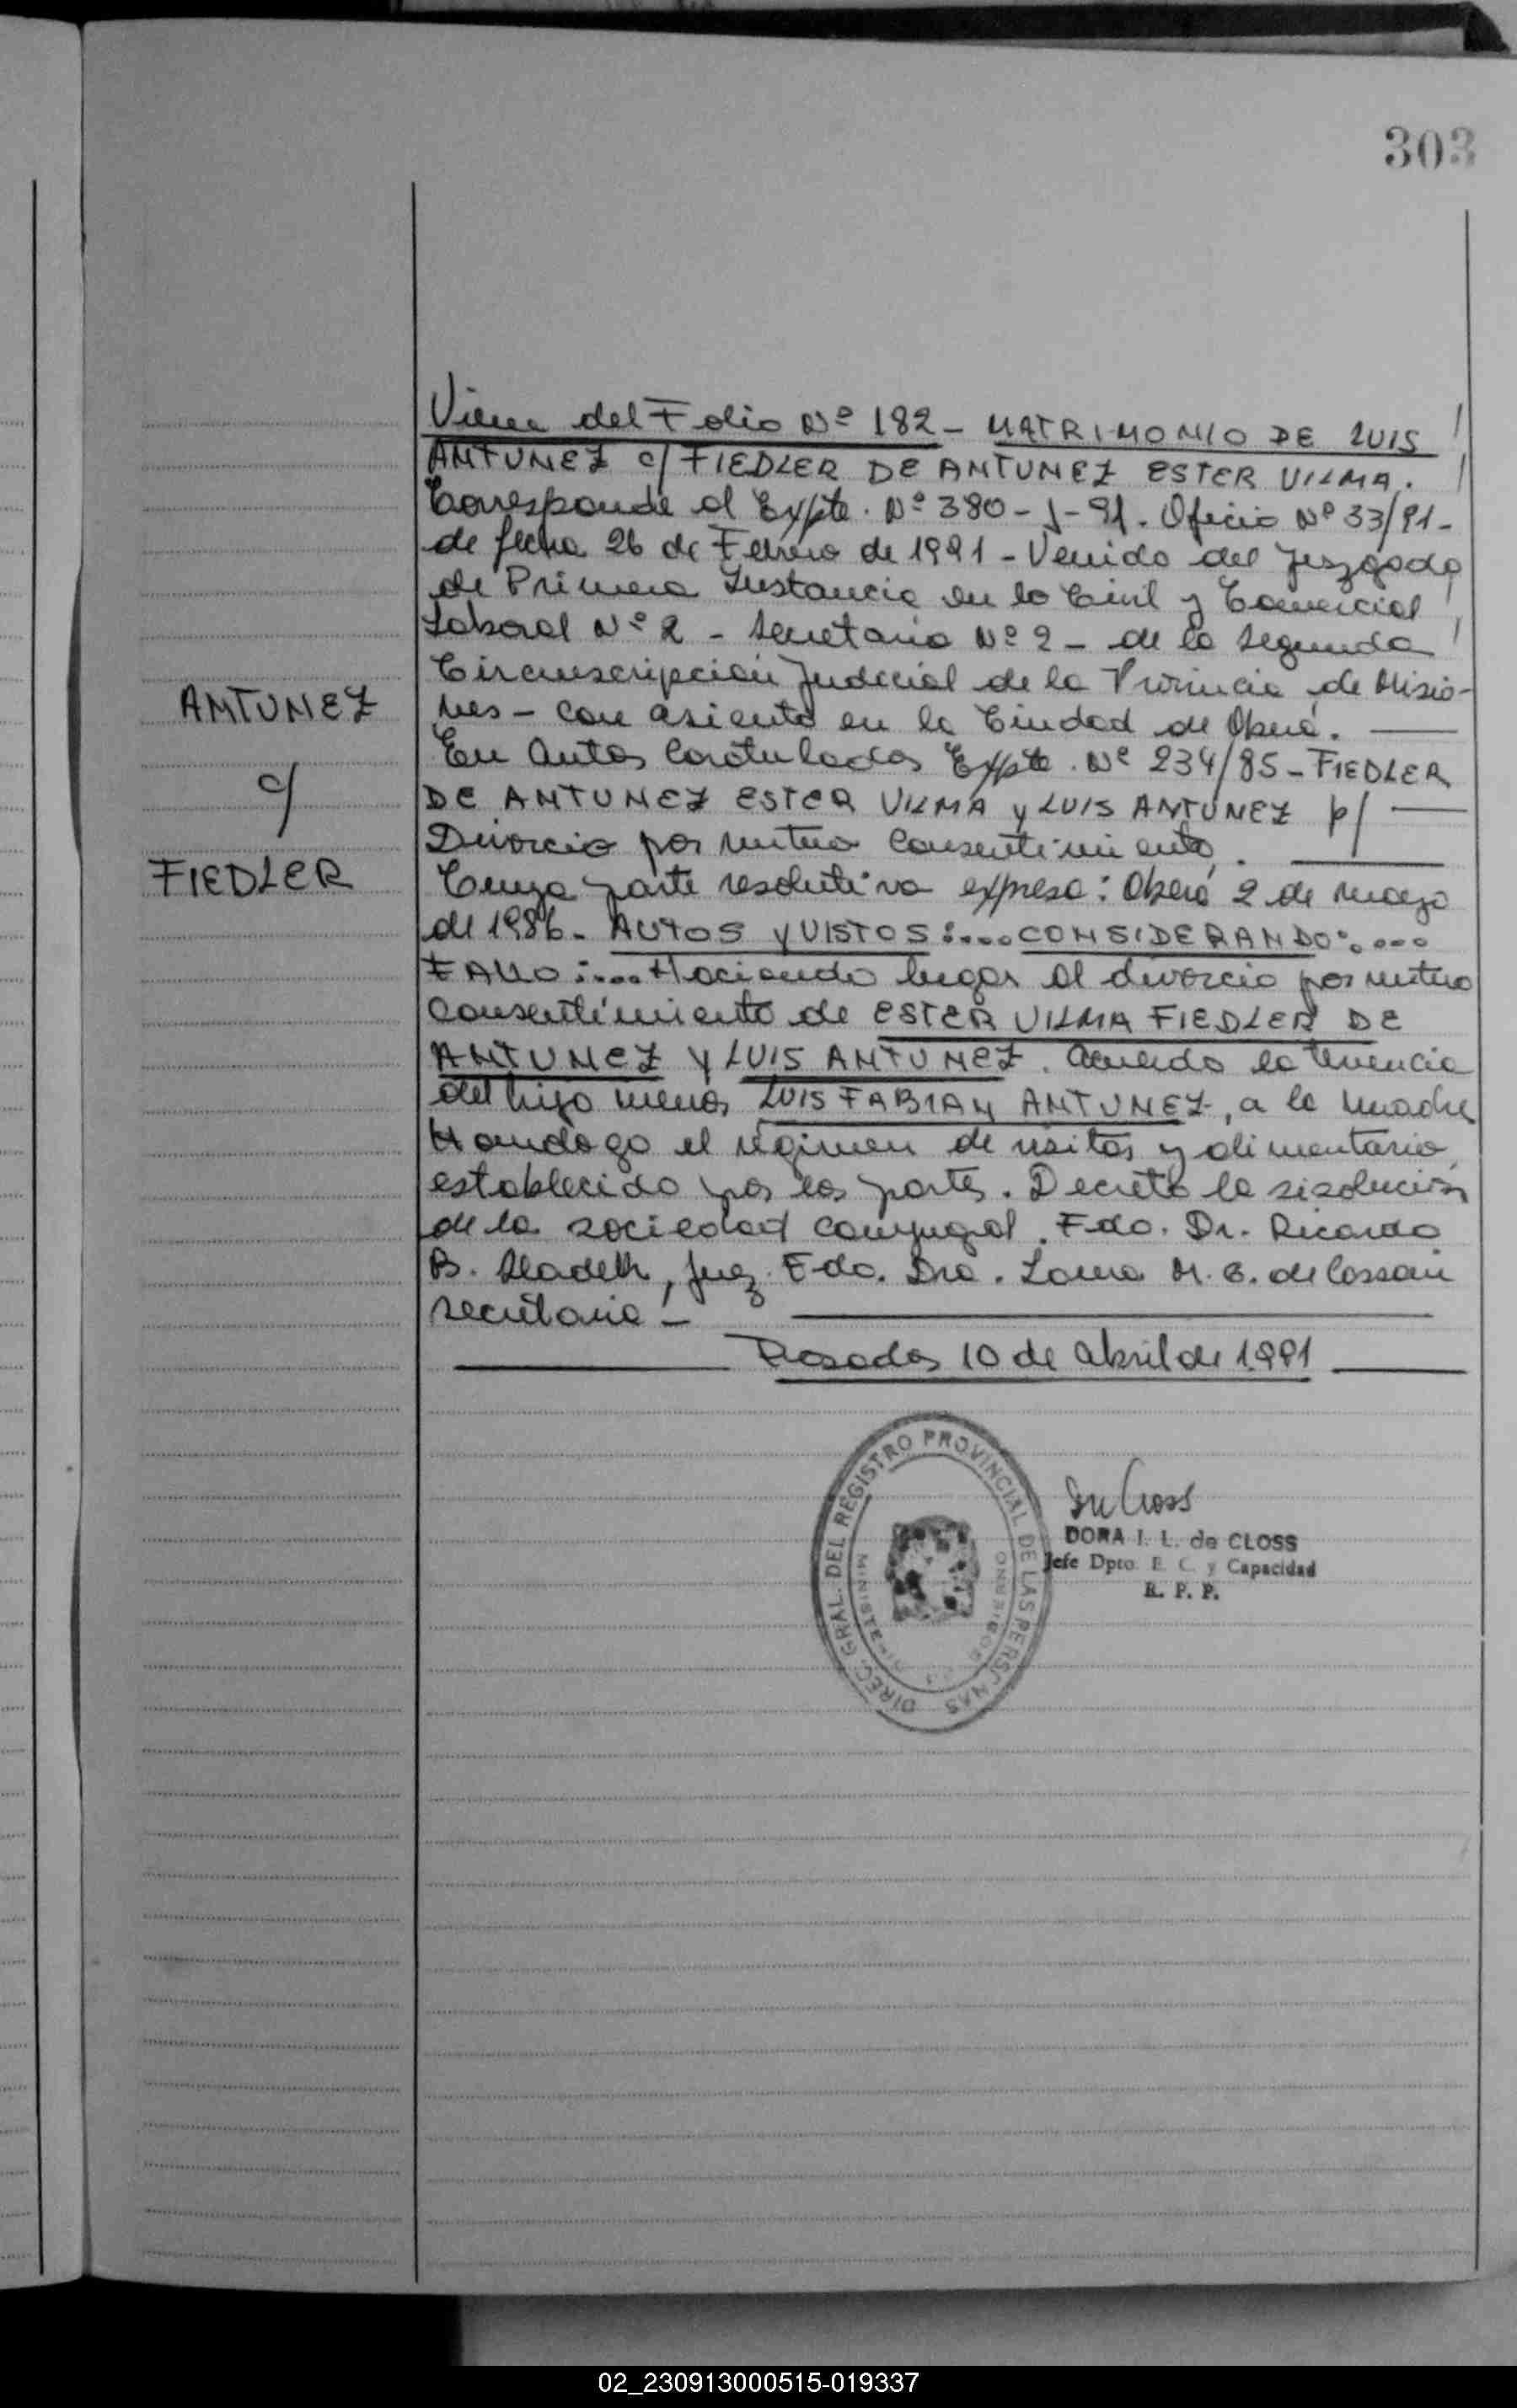 303
Viene del Folio Nº 182 - MATRIMONIO DE LUIS
ANTUNEZ c/ FIEDLER DE ANTUNEZ ESTER VILMA.
Corresponde al Expte. Nº 380-J-91. Oficio Nº 33/91-
de fecha 26 de Febrero de 1991 - Venido del Juzgado
de Primera Instancia en lo Civil y Comercial
Laboral Nº 2 - Secretaria Nº 2 - de la Segunda
Circunscripción Judicial de la Provincia de Misio-
nes - con asiento en la Ciudad de Oberá.
ANTUNEZ
c/
FIEDLER
En Autos Carátulados Expte. Nº 234/85 - FIEDLER
DE ANTUNEZ ESTER VILMA y LUIS ANTUNEZ p/
Divorcio por mutuo Consentimiento.
Cuya parte resolutiva expresa: Oberá 2 de marzo
de 1986. AUTOS y VISTOS:....CONSIDERANDO:....
FALLO:....Haciendo lugar al divorcio por mutuo
Consentimiento de ESTER VILMA FIEDLER DE
ANTUNEZ Y LUIS ANTUNEZ. Acuerdo la tenencia
del hijo menor LUIS FABIAN ANTUNEZ, a la madre
Homologo el régimen de visitas y alimentario
establecido por las partes. Decreto la sisolución
de la sociedad conyugal. Fdo. Dr. Ricardo
B. , Juez. Fdo. Dra. M. de
secretaria -
Posadas 10 de abril de 1991
DIREC. GRAL. DEL REGISTRO PROVINCIAL DE LAS PERSONAS
DORA I. L. de CLOSS
Jefe Dpto. E. C. y Capacidad
R. P. P.
02_230913000515-019337